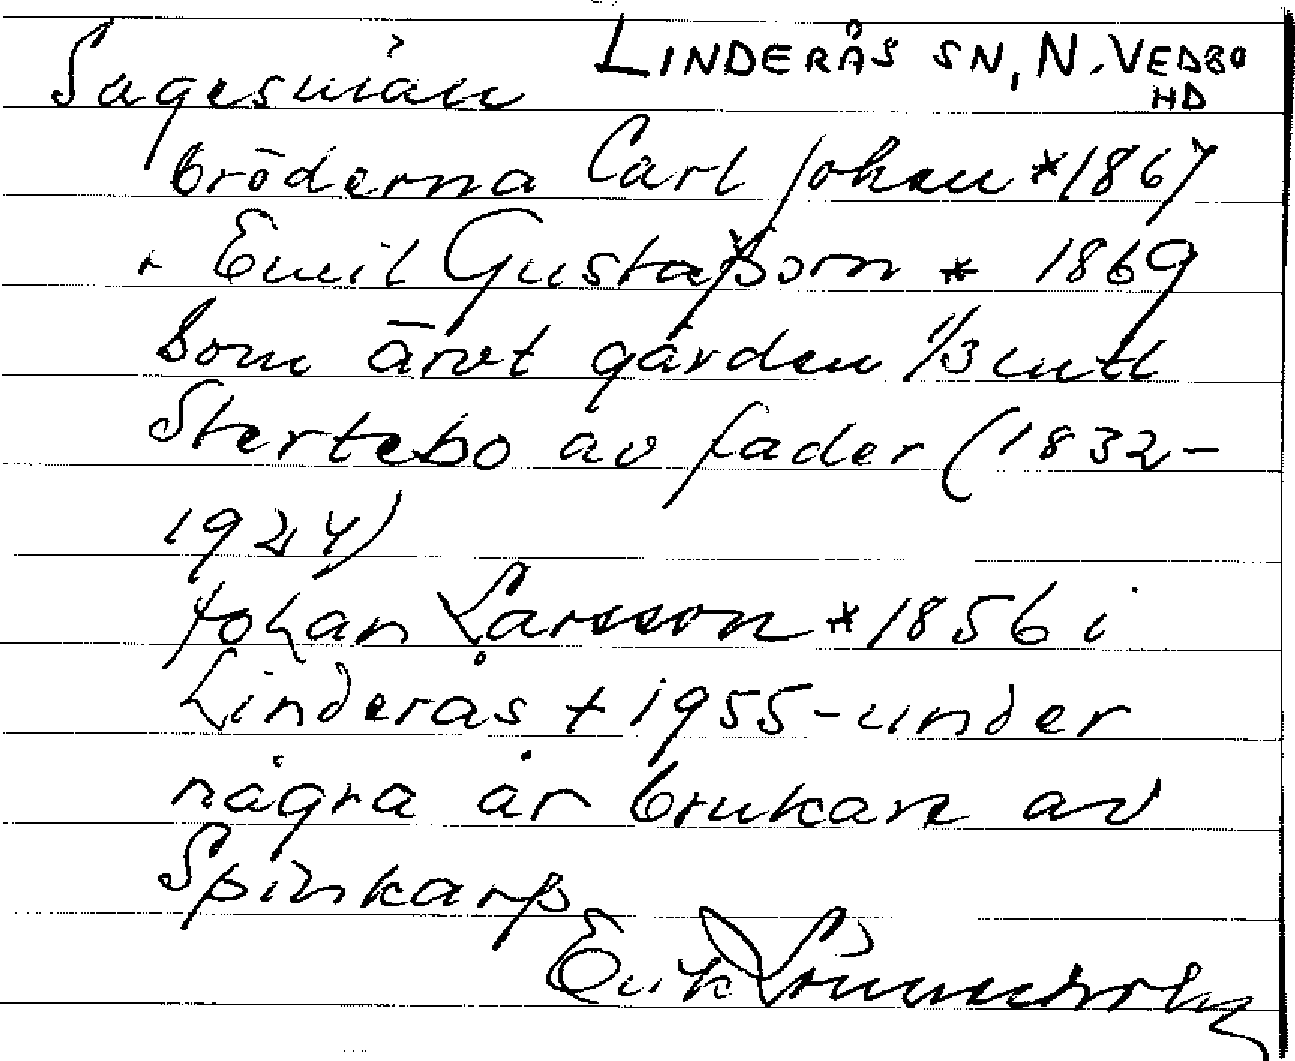 LINDERÅS SN, N. VEDBO
HD
Sagesmän
bröderna Carl Johan *1867
Emil Gustafsson * 1869
som ärvt gården 1/3 mtl
Stertebo av fader (1832-
1924)
Johan Larsson *1856 i
Linderås + 1955 - under
några år brukare av
Spinkarp
Erik Lönnerholm